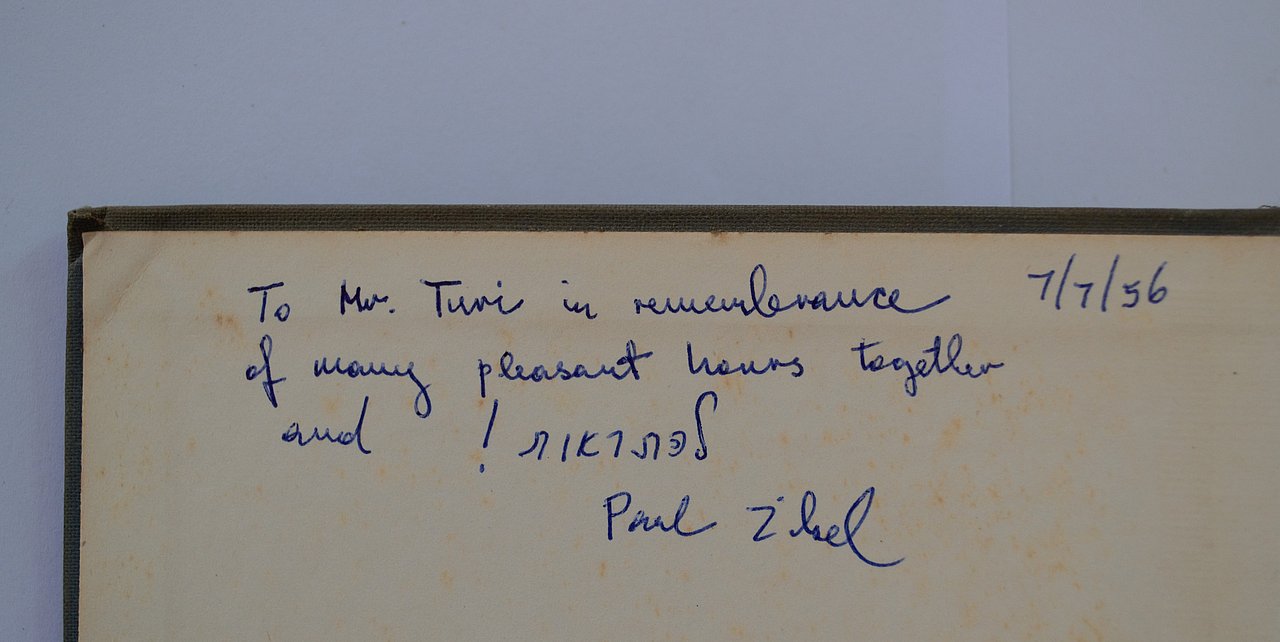 To Mr. Turi in remembrance 7/7/56
of many pleasant hours together
and להתראות!
Paul Zibel